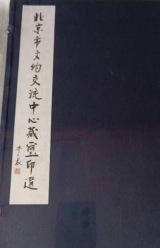 北京市文物交流中心藏璽印選